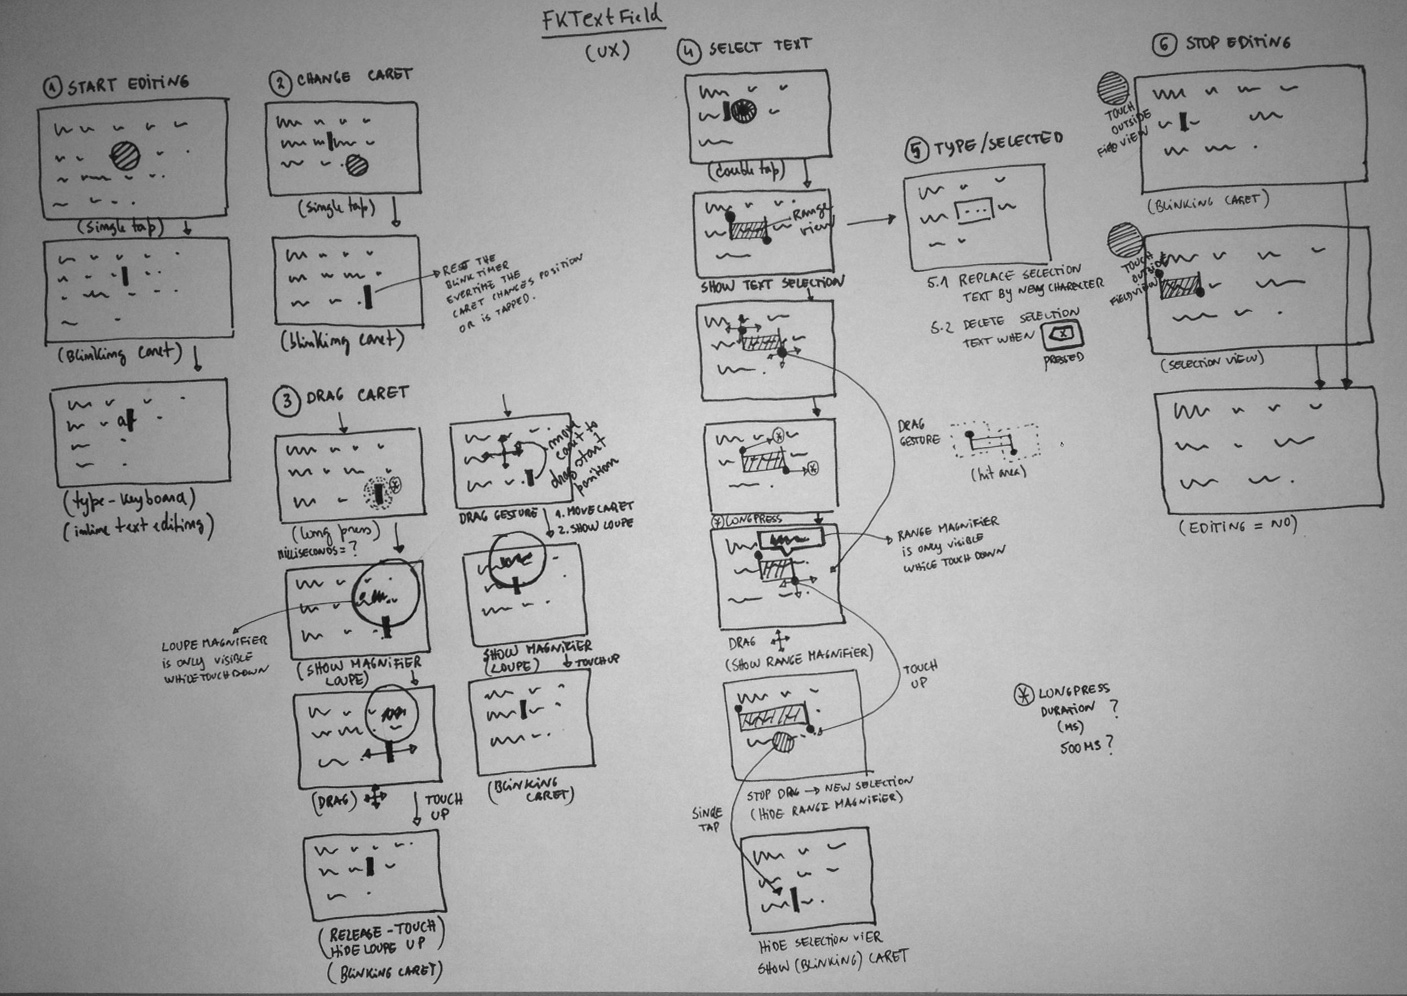 FKTextField
(UX)
1 START EDITING
(Single tap)
(Blinking caret)
a
(type-keyboard)
(inline text editing)
2 CHANGE CARET
(Single tap)
(blinking caret)
RESET THE
BLINK TIMER
EVERTIME THE
CARET CHANGES POSITION
OR IS TAPPED.
3 DRAG CARET
*
(long press)
MILLISECONDS = ?
LOUPE MAGNIFIER
is ONLY VISIBLE
WHILE TOUCH DOWN
(SHOW MAGNIFIER
LOUPE)
(DRAG)
TOUCH
UP
(RELEASE-TOUCH
HIDE LOUPE UP)
(BLINKING CARET)
move
caret to
drag start
position
DRAG GESTURE
1. MOVE CARET
2. SHOW LOUPE
SHOW MAGNIFIER
(LOUPE)
TOUCH UP
(BLINKING
CARET)
4 SELECT TEXT
(double tap)
RANGE
view
SHOW TEXT SELECTION
*
*
* LONGPRESS
DRAG
(SHOW RANGE MAGNIFIER)
RANGE MAGNIFIER
is ONLY VISIBLE
WHILE TOUCH DOWN
DRAG
GESTURE
(hit area)
TOUCH
UP
STOP DRAG → NEW SELECTION
(HIDE RANGE MAGNIFIER)
SINGLE
TAP
HIDE SELECTION VIER
SHOW (BLINKING) CARET
* LONGPRESS
DURATION ?
(MS)
500 MS ?
5 TYPE/SELECTED
...
5.1 REPLACE SELECTION
TEXT BY NEW CHARACTER
5.2 DELETE SELECTION
TEXT WHEN
X
PRESSED
6 STOP EDITING
TOUCH
OUTSIDE
FIELD VIEW
(BLINKING CARET)
TOUCH
OUTSIDE
FIELDVIEW
(SELECTION VIEW)
(EDITING = NO)